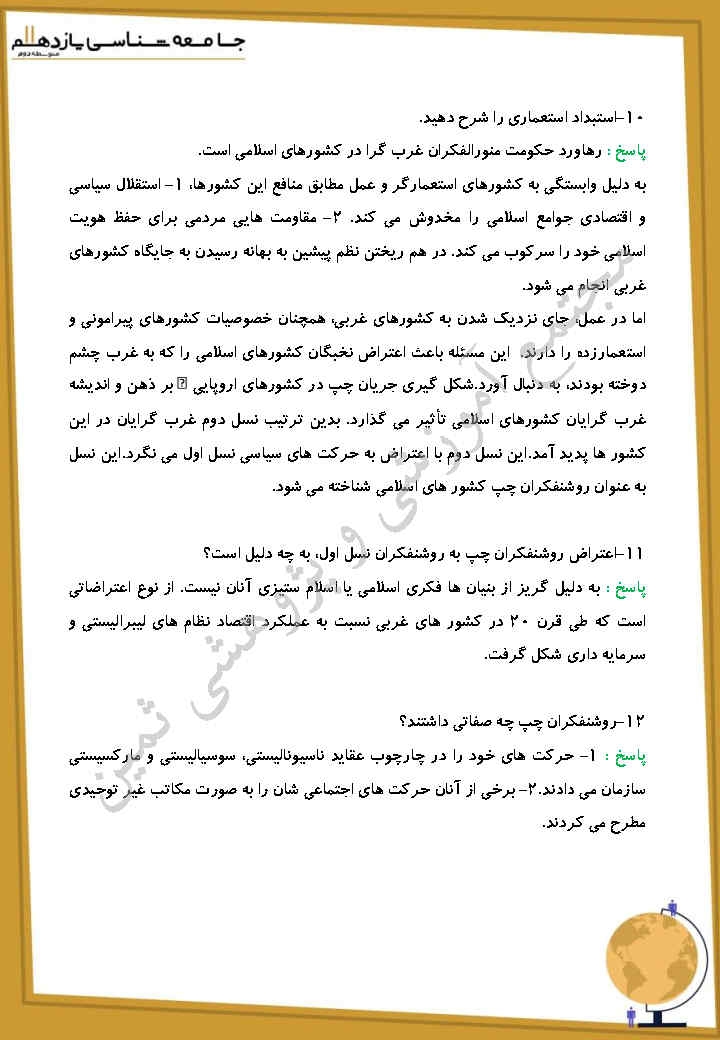 جامعه شناسی یازدهم
متوسطه دوم
10-استبداد استعماری را شرح دهید.
پاسخ : رهاورد حکومت منورالفکران غرب گرا در کشورهای اسلامی است.
به دلیل وابستگی به کشورهای استعمارگر و عمل مطابق منافع این کشورها، 1- استقلال سیاسی
و اقتصادی جوامع اسلامی را مخدوش می کند. 2- مقاومت هایی مردمی برای حفظ هویت
اسلامی خود را سرکوب می کند. در هم ریختن نظم پیشین به بهانه رسیدن به جایگاه کشورهای
غربی انجام می شود.
اما در عمل، جای نزدیک شدن به کشورهای غربی، همچنان خصوصیات کشورهای پیرامونی و
استعمارزده را دارند. این مسئله باعث اعتراض نخبگان کشورهای اسلامی را که به غرب چشم
دوخته بودند، به دنبال آورد.شکل گیری جریان چپ در کشورهای اروپایی بر ذهن و اندیشه
غرب گرایان کشورهای اسلامی تأثیر می گذارد. بدین ترتیب نسل دوم غرب گرایان در این
کشور ها پدید آمد.این نسل دوم با اعتراض به حرکت های سیاسی نسل اول می نگرد.این نسل
به عنوان روشنفکران چپ کشور های اسلامی شناخته می شود.
11-اعتراض روشنفکران چپ به روشنفکران نسل اول، به چه دلیل است؟
پاسخ : به دلیل گریز از بنیان ها فکری اسلامی یا اسلام ستیزی آنان نیست. از نوع اعتراضاتی
است که طی قرن 20 در کشور های غربی نسبت به عملکرد اقتصاد نظام های لیبرالیستی و
سرمایه داری شکل گرفت.
12-روشنفکران چپ چه صفاتی داشتند؟
پاسخ : 1- حرکت های خود را در چارچوب عقاید ناسیونالیستی، سوسیالیستی و مارکسیستی
سازمان می دادند.2- برخی از آنان حرکت های اجتماعی شان را به صورت مکاتب غیر توحیدی
مطرح می کردند.
مجتمع آموزشی و پژوهشی ثمین